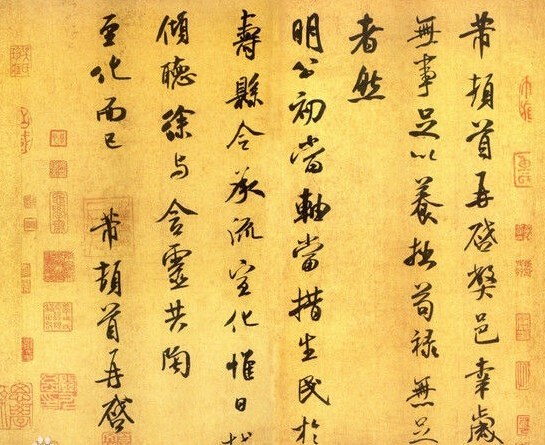 芾頓首再啓弊邑幸歲
無事足以養拙苟禄無足
者然
明公初當軸當措生民於
壽縣令承流宣化惟日
傾聽徐与含靈共陶
至化而已 芾頓首再啓